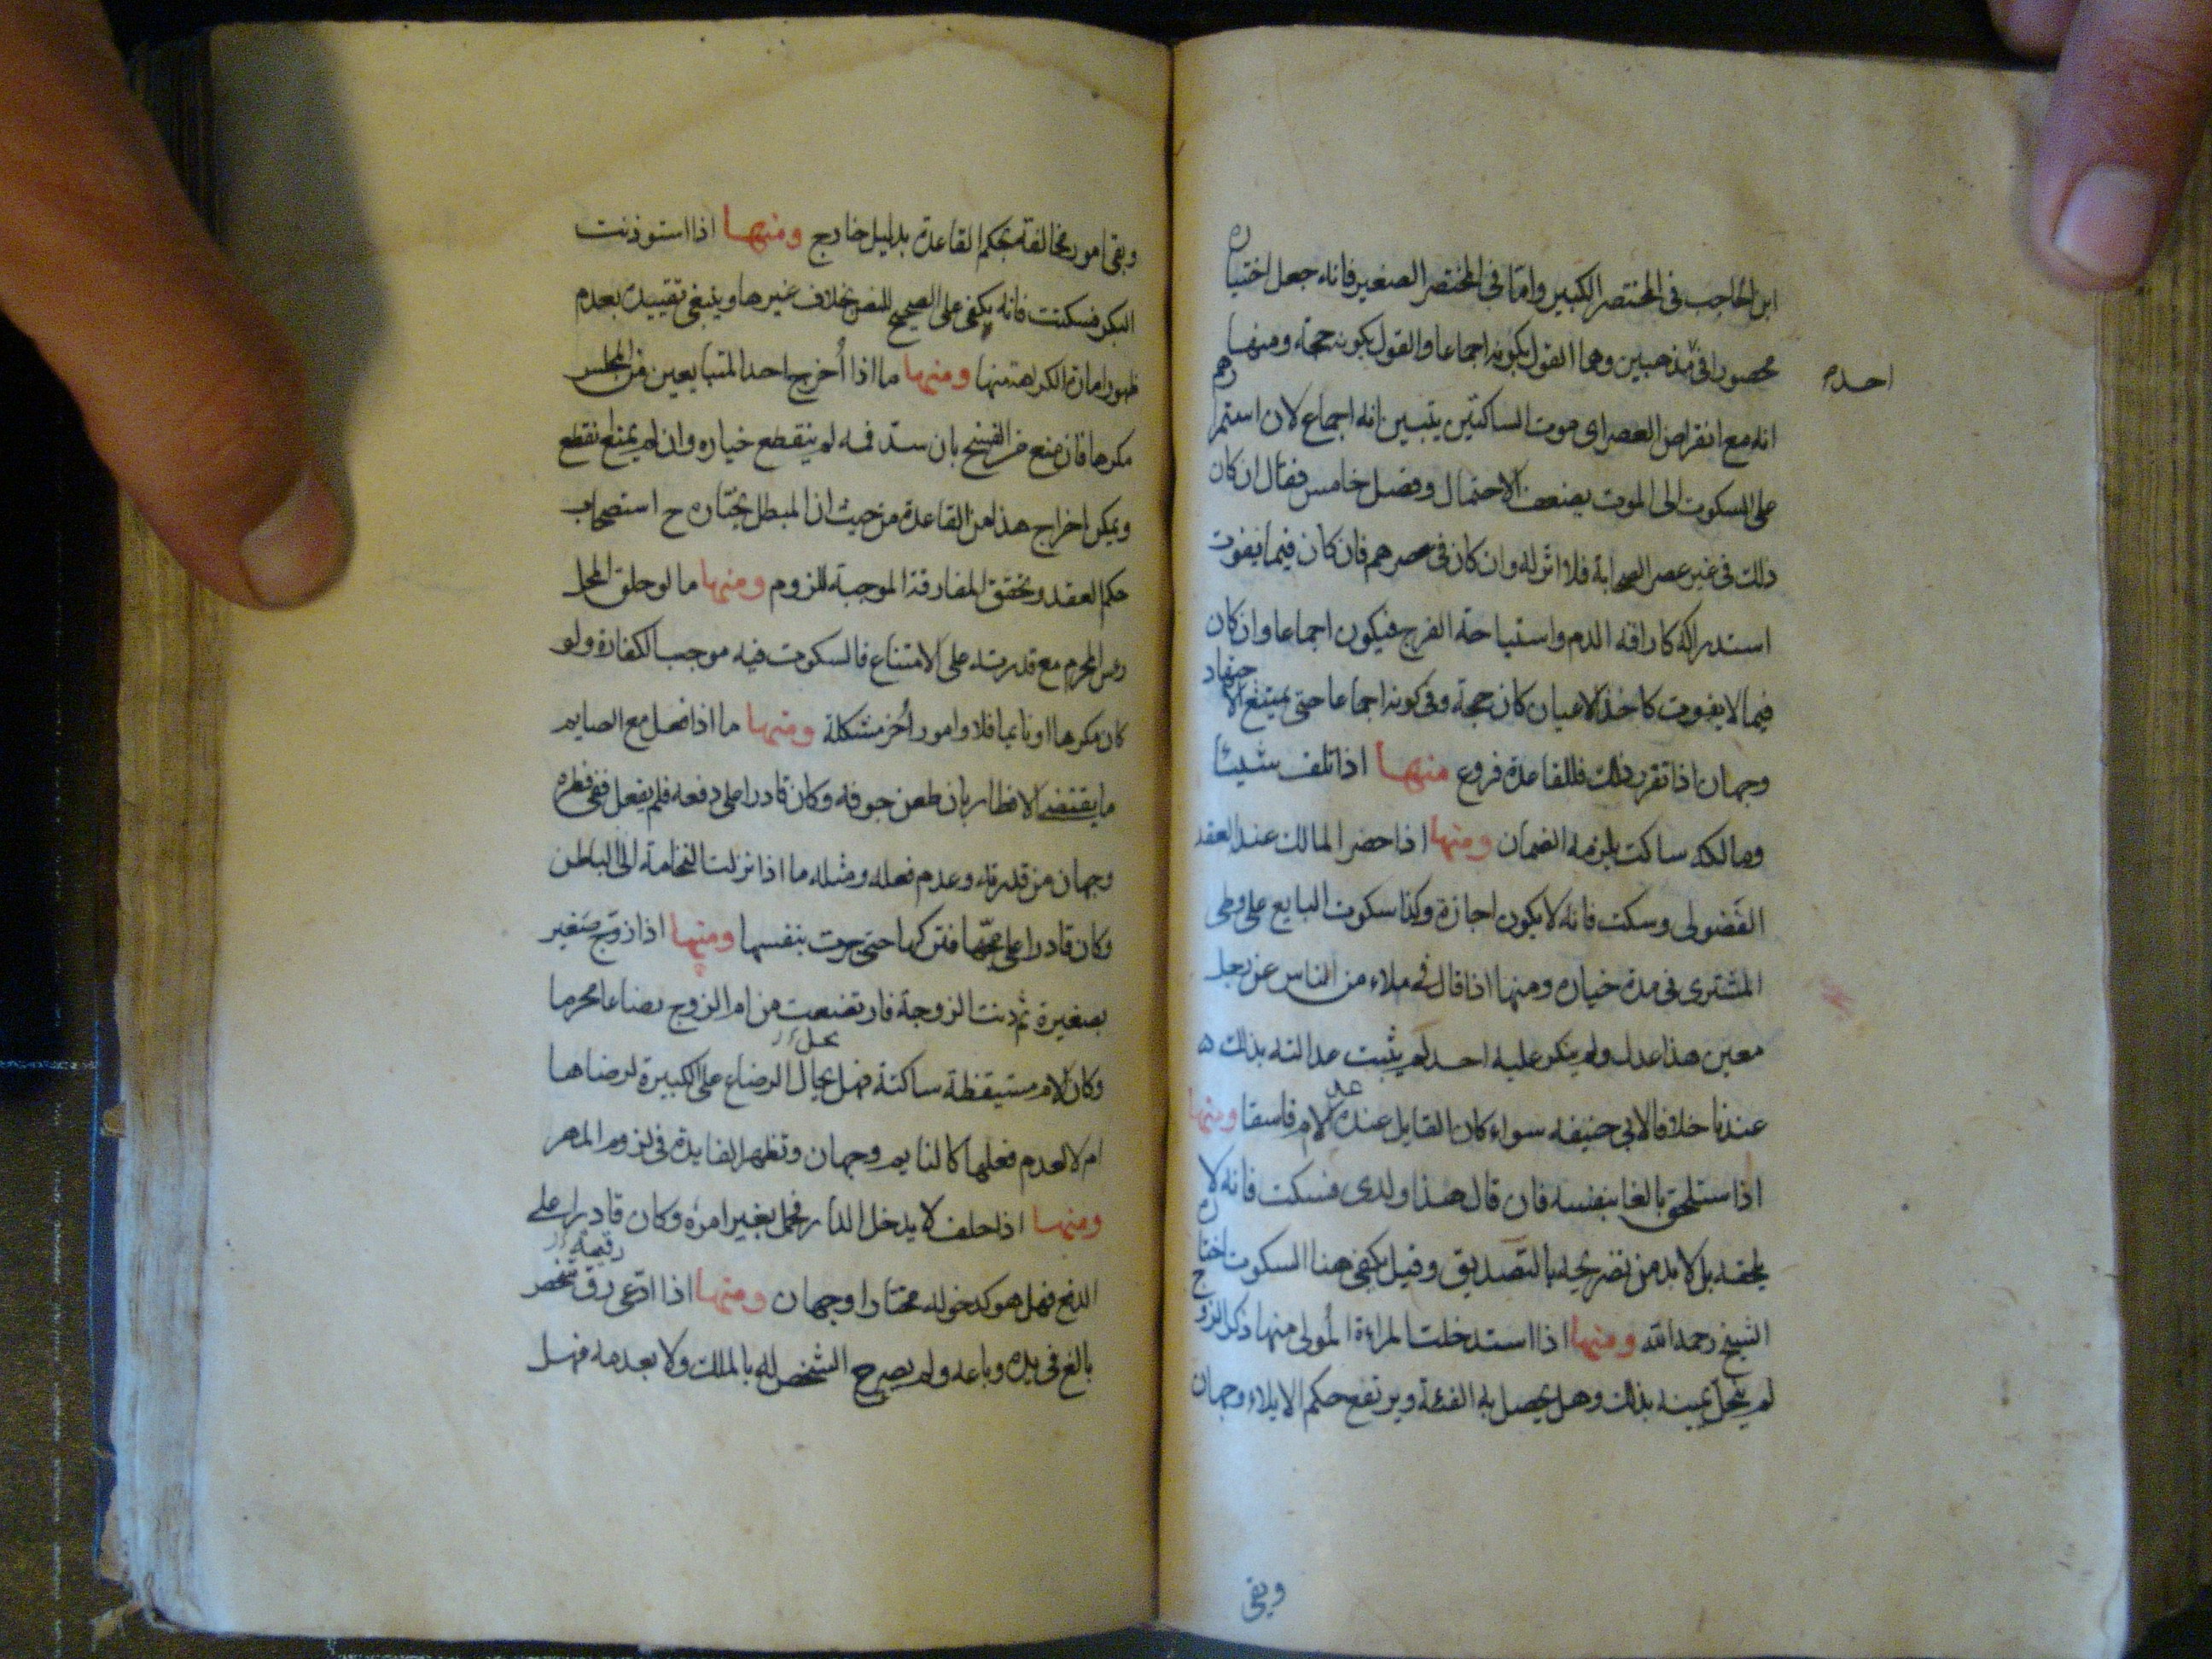 ابن الحاجب في المختصر الكبير واما في المختصر الصغير فانه جعل اختياره
محصورا في مذهبين وهما القول بكونه اجماعا والقول بكونه حجة ومنها
احده
انه مع انقراض العصر اى موت الساكتين يتبين انه اجماع لان استمرارهم
على السكوت الى الموت يضعف الاحتمال وفصل خامس فقال ان كان
ذلك في غير عصر الصحابة فلا اثر له وان كان في عصرهم فان كان فيما يفوت
استدراكه كاراقة الدم واستباحة الفرج فيكون اجماعا وان كان
فيما لا يفوت كاخذ الاعيان كان حجة وفي كونه اجماعا حتى يمتنع الاجتهاد
وجهان اذا تقرر ذلك فللقاعدة فروع منها اذا تلف شيئا
ومالكه ساكت يلزمه الضمان ومنها اذا حضر المالك عند العقد
الفضولى وسكت فانه لا يكون اجازة وكذا سكوت البايع على وطى
المشترى في مدة خياره ومنها اذا قال في ملاء من الناس عن رجل
معين هذا عدل ولم ينكر عليه احد لم يثبت عدالته بذلك
عندنا خلافا لابي حنيفه سواء كان القايل عنده عدلا ام فاسقا ومنها
اذا ستلحق بالغا بنفسه فان قال هذا ولدى فسكت فانه لا
يلحقه بل لا بد من تصريحه بالتصديق وقيل يكفى هنا السكوت اختاره
الشيخ رحمه الله ومنها اذا استدخلت المراءة المولى منها ذكر الزوج
لم ينحل يمينه بذلك وهل يحصل به الفئة ويرتفع حكم الايلاء وجهان
وبقى
وبقى امور مخالفة لحكم القاعدة بدليل خارج ومنها اذا استوذنت
البكر فسكتت فانه يكفى على الصحيح للنص بخلاف غيرها وينبغى تقييده بعدم
ظهور امارة الكراهة منها ومنها ما اذا أخرج احد المتبايعين من المجلس
مكرها فان منع من الفسخ بان سد فمه لم ينقطع خياره وان لم يمنع انقطع
ويمكن اخراج هذا من القاعدة من حيث ان المبطل يختاره ح استصحاب
حكم العقد وتحقق المفارقة الموجبة للزوم ومنها ما لو حلق المحل
رءس المحرم مع قدرته على الامتناع فالسكوت فيه موجب الكفارة ولو
كان مكرها او نايما فلا وامور أخر مشكلة ومنها ما اذا فعل مع الصايم
ما يقتضى الافطار بان طعن جوفه وكان قادرا على دفعه فلم يفعل ففى فطره
وجهان من قدرته وعدم فعله ومثله ما اذا نزلت النخامة الى الباطن
وكان قادرا على مجها فتركها حتى جرت بنفسها ومنها اذا زوج صغير
بصغيرة ثم دنت الزوجة فارتضعت من ام الزوج رضاعا محرما
وكان الام مستيقظة ساكتة فهل يحال الرضاع على الكبيرة لرضاها
ام لا لعدم فعلها كالنايم وجهان وتظهر الفايدة في لزوم المهر
ومنها اذا حلف لا يدخل الدار فحمل بغير امره وكان قادرا على
الدفع فهل هو كدخوله مختارا وجهان ومنها اذا ادعى رق شخص
بالغ في يده وباعه ولم يصرح الشخص له بالملك ولا بعدمه فهل